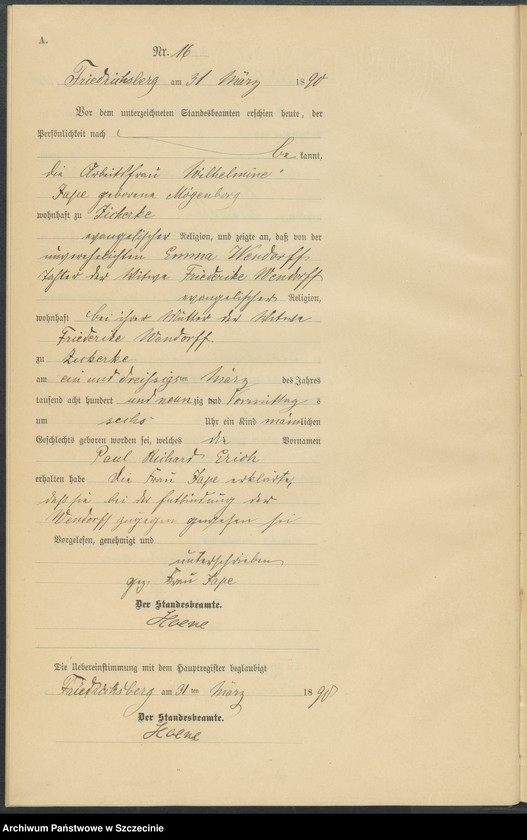 A.
Nr. 16
Friedrichsberg am 31 März 1890
Vor dem unterzeichneten Standesbeamten erschien heute, der
Persönlichkeit nach
be kannt,
die Arbeitsfrau Wilhelmine
Jape geborene Mögenborg
wohnhaft zu Zickerke
evangelischer Religion, und zeigte an, daß von der
unverehelichten Emma Wendorff
Tochter der Witwe Friederike Wendorff
evangelischer Religion,
wohnhaft bei ihrer Mutter der Witwe
Friederike Wendorff
zu Zickerke
am ein und dreißigsten März des Jahres
tausend acht hundert und neunzig und Vormittag s
um sechs Uhr ein Kind männlichen
Geschlechts geboren worden sei, welches die Vornamen
Paul Richard Erich
erhalten habe Die Frau Jape erklärte,
daß sie bei der Entbindung der
Wendorff zugegen gewesen sei
Vorgelesen, genehmigt und
unterschrieben
gez. Frau Jape
Der Standesbeamte.
Hoene
Die Uebereinstimmung mit dem Hauptregister beglaubigt
Friedrichsberg am 31 ten März 1890
Der Standesbeamte.
Hoene
Archiwum Państwowe w Szczecinie